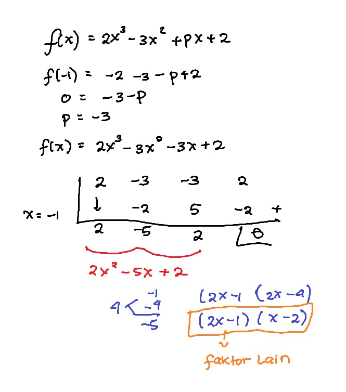 f(x) = 2x³ - 3x² + px + 2
f(-1) = -2 -3 - p+2
0 = -3-p
p = -3
f(x) = 2x³ - 3x² - 3x + 2
2 -3 -3 2
x = -1 ↓ -2 5 -2 +
2 -5 2 0
2x² - 5x + 2
-1 (2x-1 (2x-4)
4 < -4 (2x-1) (x-2)
-5
faktor Lain